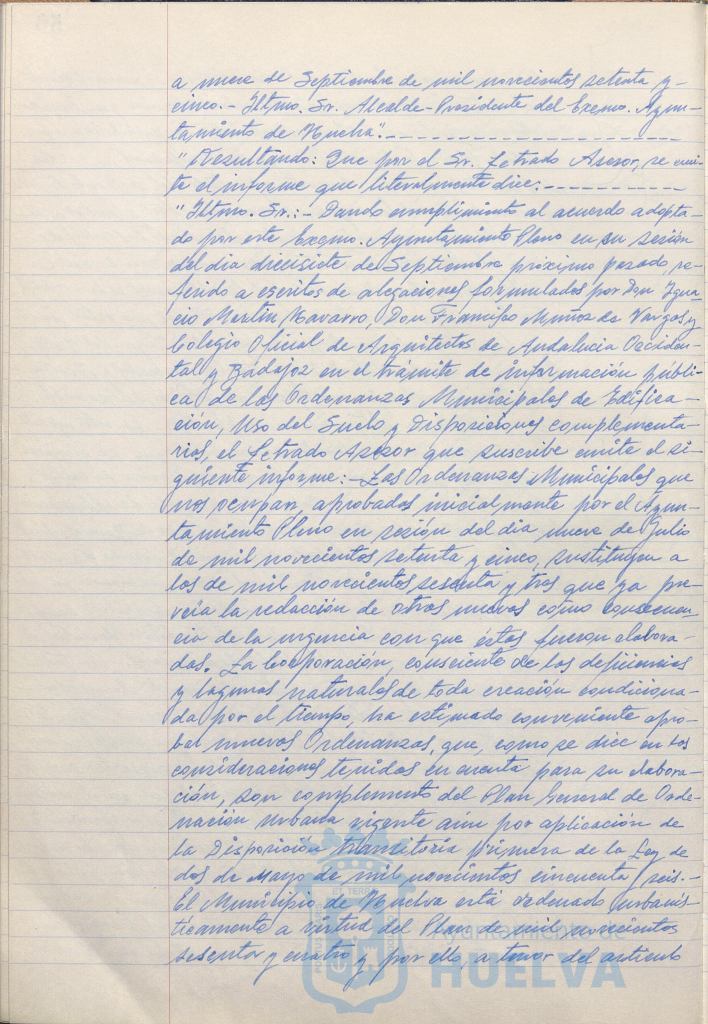 a nueve de Septiembre de mil novecientos setenta y
cinco.- Iltmo. Sr. Alcalde-Presidente del Excmo. Ayun-
tamiento de Huelva".-
"Resultando: Que por el Sr. Letrado Asesor, se emi-
te el informe que literalmente dice:
"Iltmo. Sr.:- Dando cumplimiento al acuerdo adopta-
do por este Excmo. Ayuntamiento Pleno en su sesión
del dia diecisiete de Septiembre próximo pasado, re-
ferido a escritos de alegaciones formulados por Don Igna-
cio Merlin Navarro, Don Francisco Muñoz de Vargas y
Colegio Oficial de Arquitectos de Andalucia Occiden-
tal y Badajoz en el trámite de información públi-
ca de las Ordenanzas Municipales de Edifica-
ción, Uso del Suelo y Disposiciones complementa-
rias, el Letrado Asesor que suscribe emite el si-
guiente informe:- Las Ordenanzas Municipales que
nos ocupan, aprobadas inicialmente por el Ayun-
tamiento Pleno en sesión del dia nueve de Julio
de mil novecientos setenta y cinco, sustituyen a
las de mil novecientos sesenta y tres que ya pre-
veia la redacción de otras nuevas como consecuen-
cia de la urgencia con que éstas fueron elabora-
das. La Corporación, consciente de las deficiencias
y lagunas naturales de toda creación condiciona-
da por el tiempo, ha estimado conveniente apro-
bar nuevas Ordenanzas, que, como se dice en las
consideraciones tenidas en cuenta para su elabora-
ción, son complemento del Plan General de Orde-
nación Urbana vigente aún por aplicación de
la Disposición transitoria primera de la Ley de
dos de Mayo de mil novecientos cincuenta y seis.-
El Municipio de Huelva está ordenado urbanis-
ticamente a virtud del Plan de mil novecientos
sesenta y cuatro y por ello, a tenor del articulo
Ayuntamiento de
HUELVA